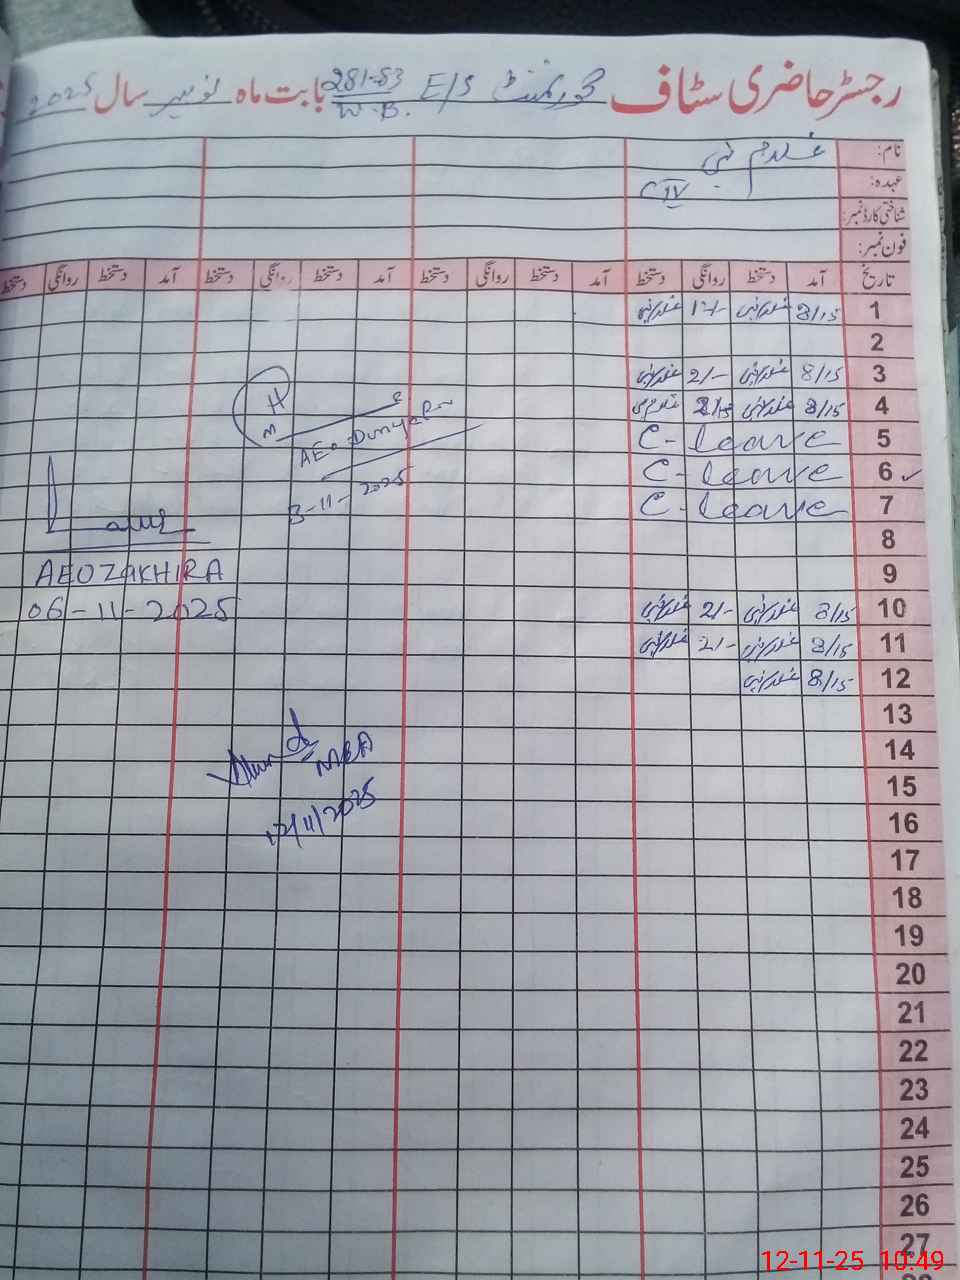 رجسٹر حاضری سٹاف گورنمنٹ E/S 281-83/W.B. بابت ماہ نومبر سال 2025
نام: غلام نبی
عہدہ: C IV
شناختی کارڈ نمبر:
فون نمبر:
تاریخ آمد دستخط روانگی دستخط آمد دستخط روانگی دستخط آمد دستخط روانگی دستخط آمد دستخط روانگی دستخط
1 8/15 غلام نبی غلام نبی
2
3 8/15 غلام نبی 2/- غلام نبی
4 8/15 غلام نبی غلام نبی
5 C-leave
6 C-leave
7 C-leave
8
9
10 8/15 غلام نبی 2/- غلام نبی
11 8/15 غلام نبی 2/- غلام نبی
12 8/15 غلام نبی
13
14
15
16
17
18
19
20
21
22
23
24
25
26
27
H
M
AEO
3-11-2025
AEO ZAKHIRA
06-11-2025
MEA
12/11/2025
12-11-25 10:49